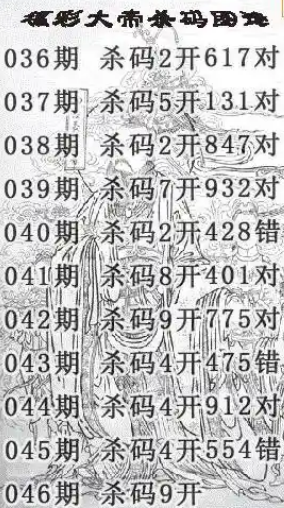 福彩大帝杀码图谜
036期 杀码2开617对
037期 杀码5开131对
038期 杀码2开847对
039期 杀码7开932对
040期 杀码2开428错
041期 杀码8开401对
042期 杀码9开775对
043期 杀码4开475错
044期 杀码4开912对
045期 杀码4开554错
046期 杀码9开